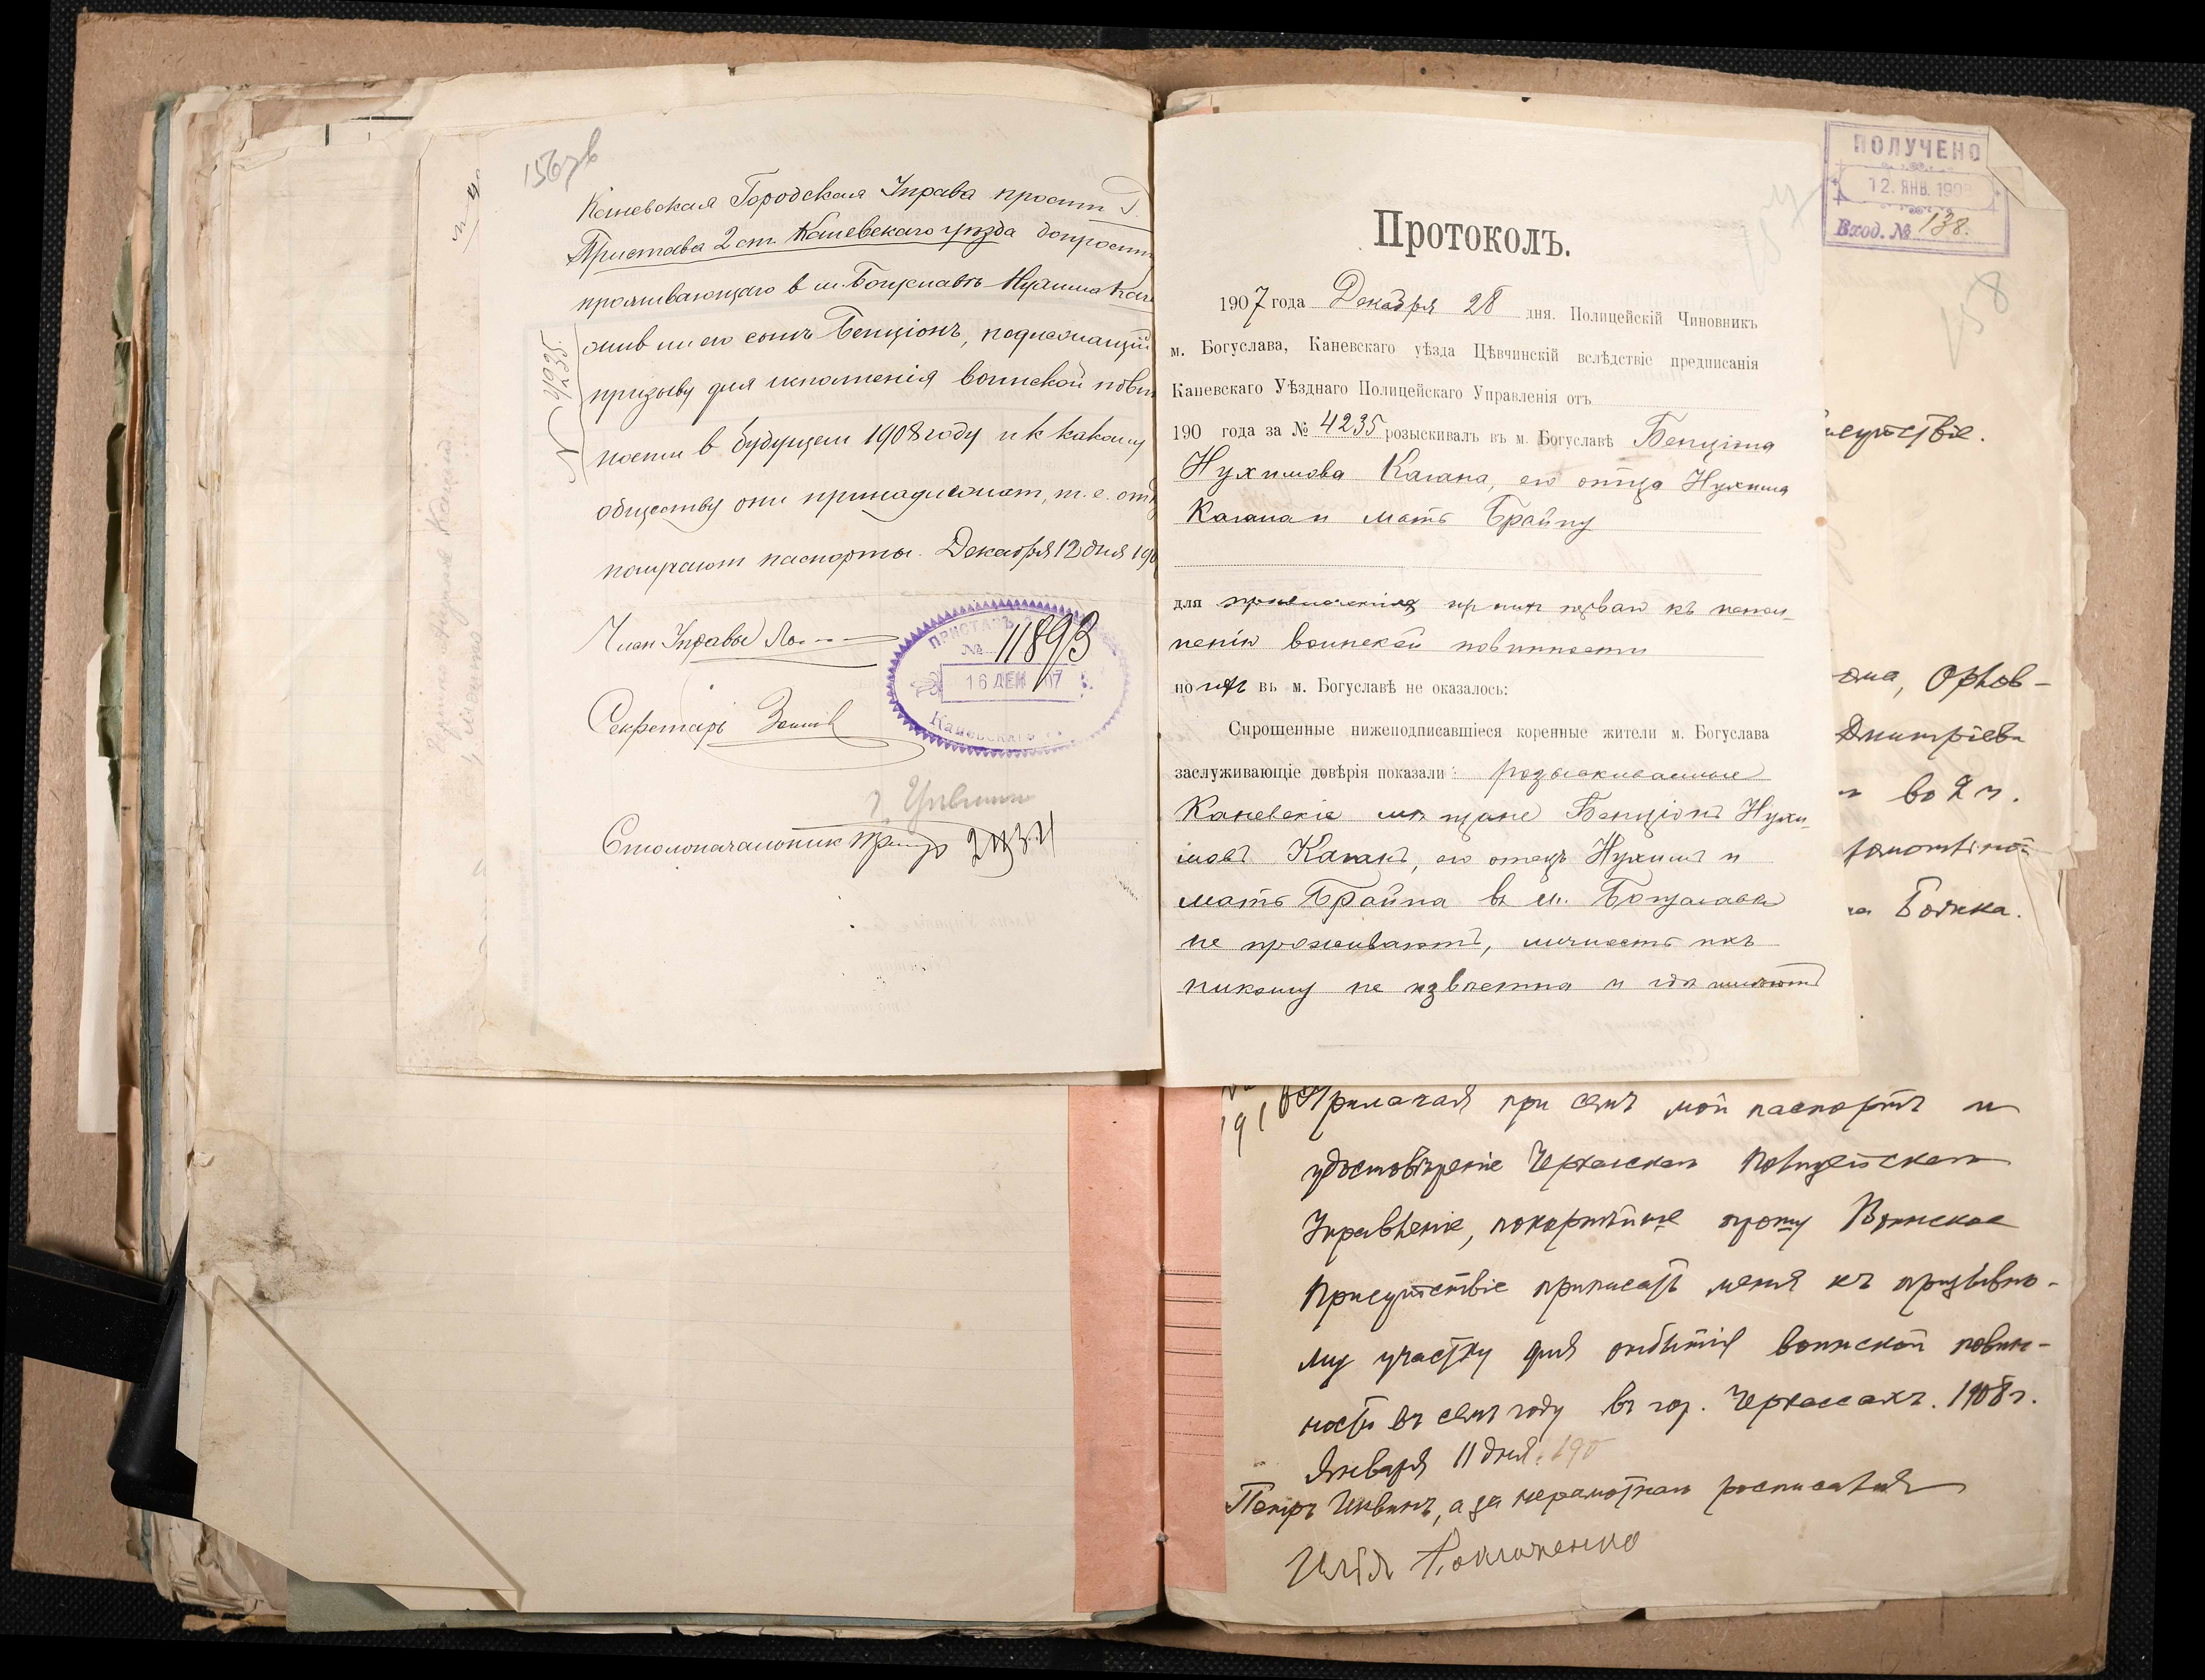 156зв
Каневская Городская Управа просит Г.
Пристава 2 ст. Каневскаго уѣзда допросить
проживающаго в м. Богуславѣ Нухима Каг
жив ли его сынъ Бенціонъ, подлежащій
призыву для исполненія воинской повин
ности в будущем 1908 году и к какому
обществу они принадлежат, т. е. отк
получают паспорты. Декабря 12 дня 190
Член Управы
ПРИСТАВЪ
№ 11893
16 ДЕК 07
Каневскаго
Секретарь
Столоначальник
№ 4235
Протоколъ.
1907 года Декабря 28 дня. Полицейскій Чиновникъ
м. Богуслава, Каневскаго уѣзда Цѣвчинскій вслѣдствіе предписанія
Каневскаго Уѣзднаго Полицейскаго Управленія отъ
190 года за № 4235 розыскивалъ въ м. Богуславѣ Бенціона
Нухимова Кагана, его отца Нухима
Кагана и мать Брайну
для призыва къ испол-
ненію воинской повинности
но ихъ въ м. Богуславѣ не оказалось:
Спрошенные нижеподписавшіеся коренные жители м. Богуслава
заслуживающіе довѣрія показали: розыскиваемые
Каневскіе мѣщане Бенціонъ Нухи-
мовъ Каганъ, его отецъ Нухимъ и
мать Брайна въ м. Богуславѣ
не проживаютъ, личность ихъ
никому не извѣстна и гдѣ
ПОЛУЧЕНО
12. ЯНВ. 1908
Вход. № 138.
158
сутствіе.
Дмитріева
Прилагая при семъ мой паспортъ и
удостовѣреніе Черкасскаго Полицейскаго
Управленія, покорнѣйше прошу Воинское
Присутствіе приписать меня къ призывно-
му участку для отбытія воинской повин-
ности въ семъ году въ гор. Черкассахъ. 1908 г.
Января 11 дня. 190
Петръ, а за неграмотнаго росписался
Илья